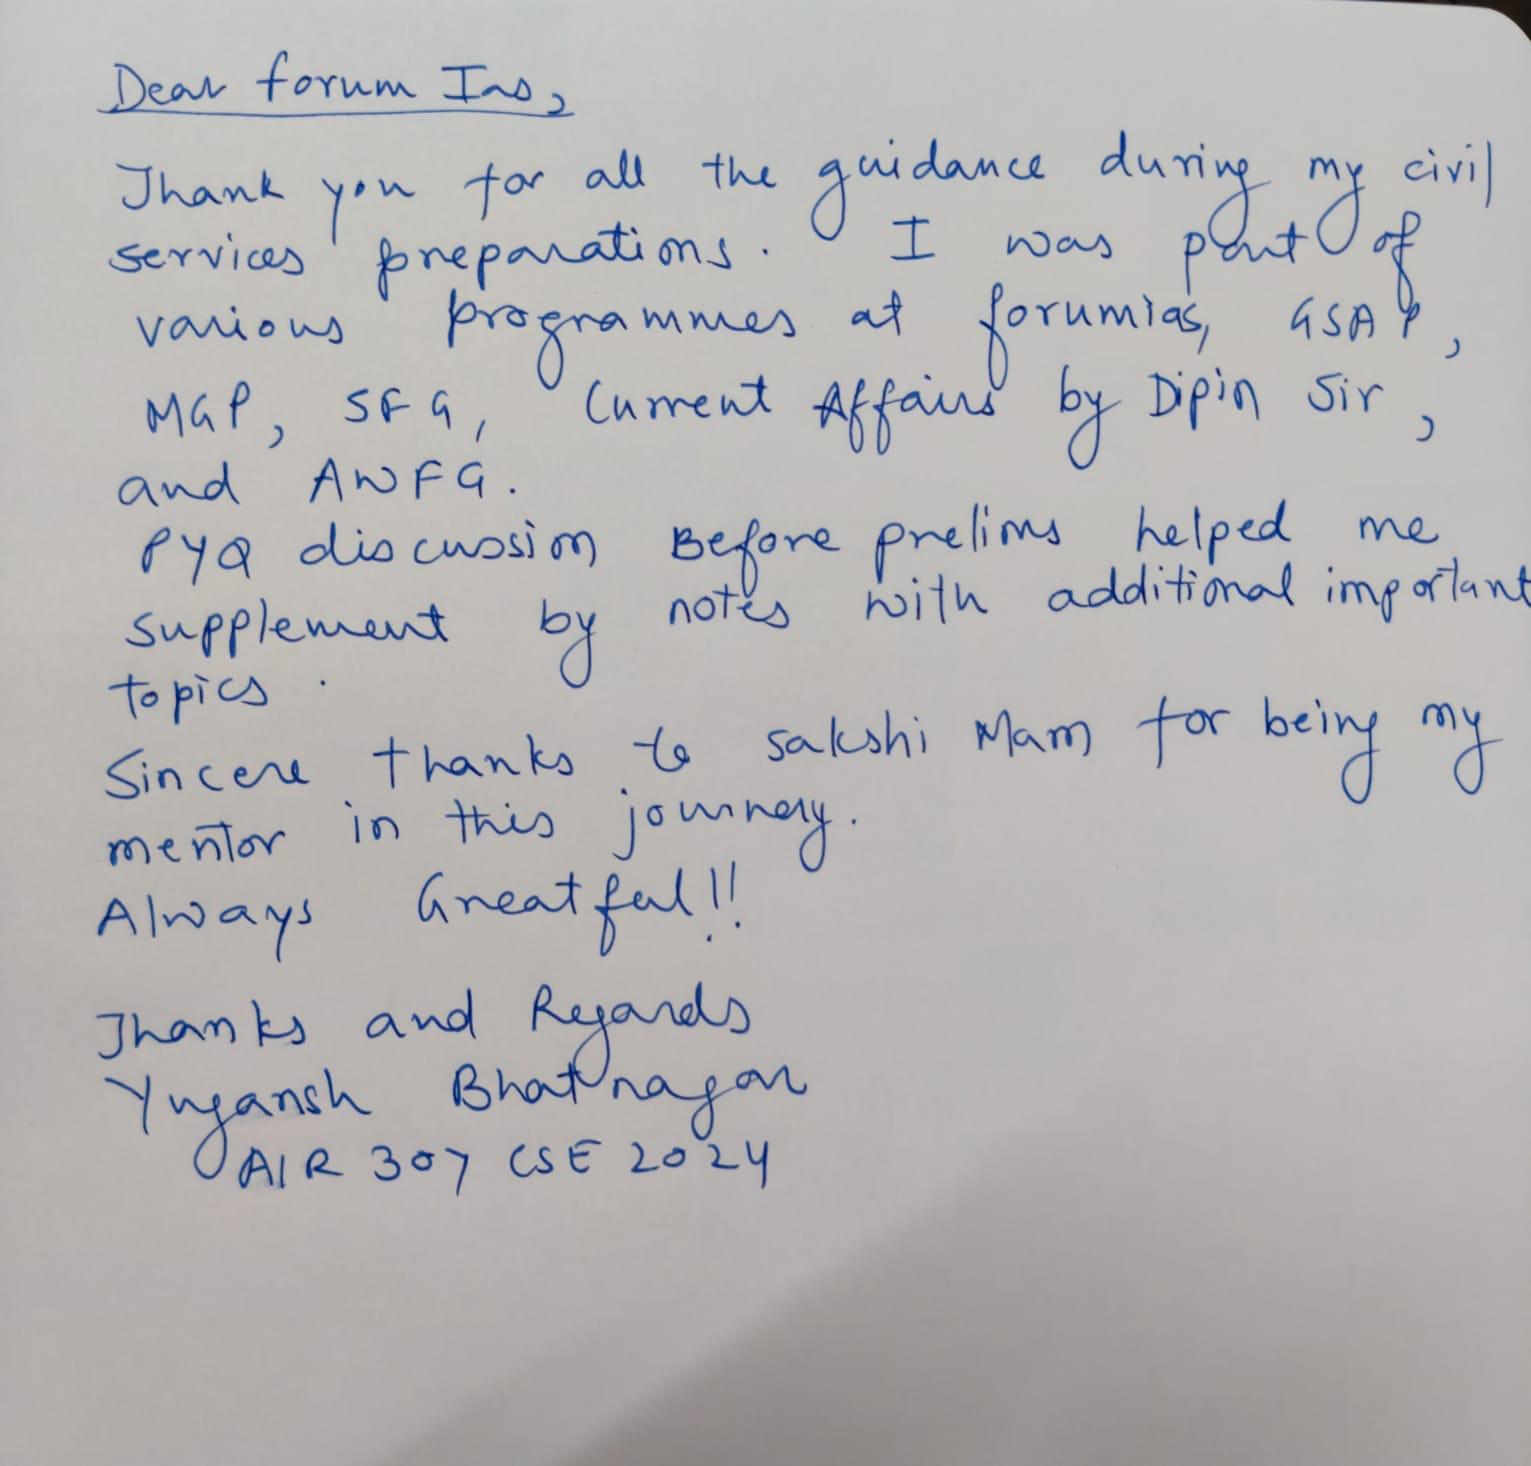 Dear forum Ias,
Thank you for all the guidance during my civil
services preparations. I was part of
various programmes at forumias, GSAP,
MGP, SFG, Current Affairs by Dipin Sir,
and AWFG.
PYQ discussion Before prelims helped me
supplement by notes with additional important
topics.
Sincere thanks to sakshi Mam for being my
mentor in this journery.
Always Greatful!!
Thanks and Regards
Yugansh Bhatnagar
AIR 307 CSE 2024